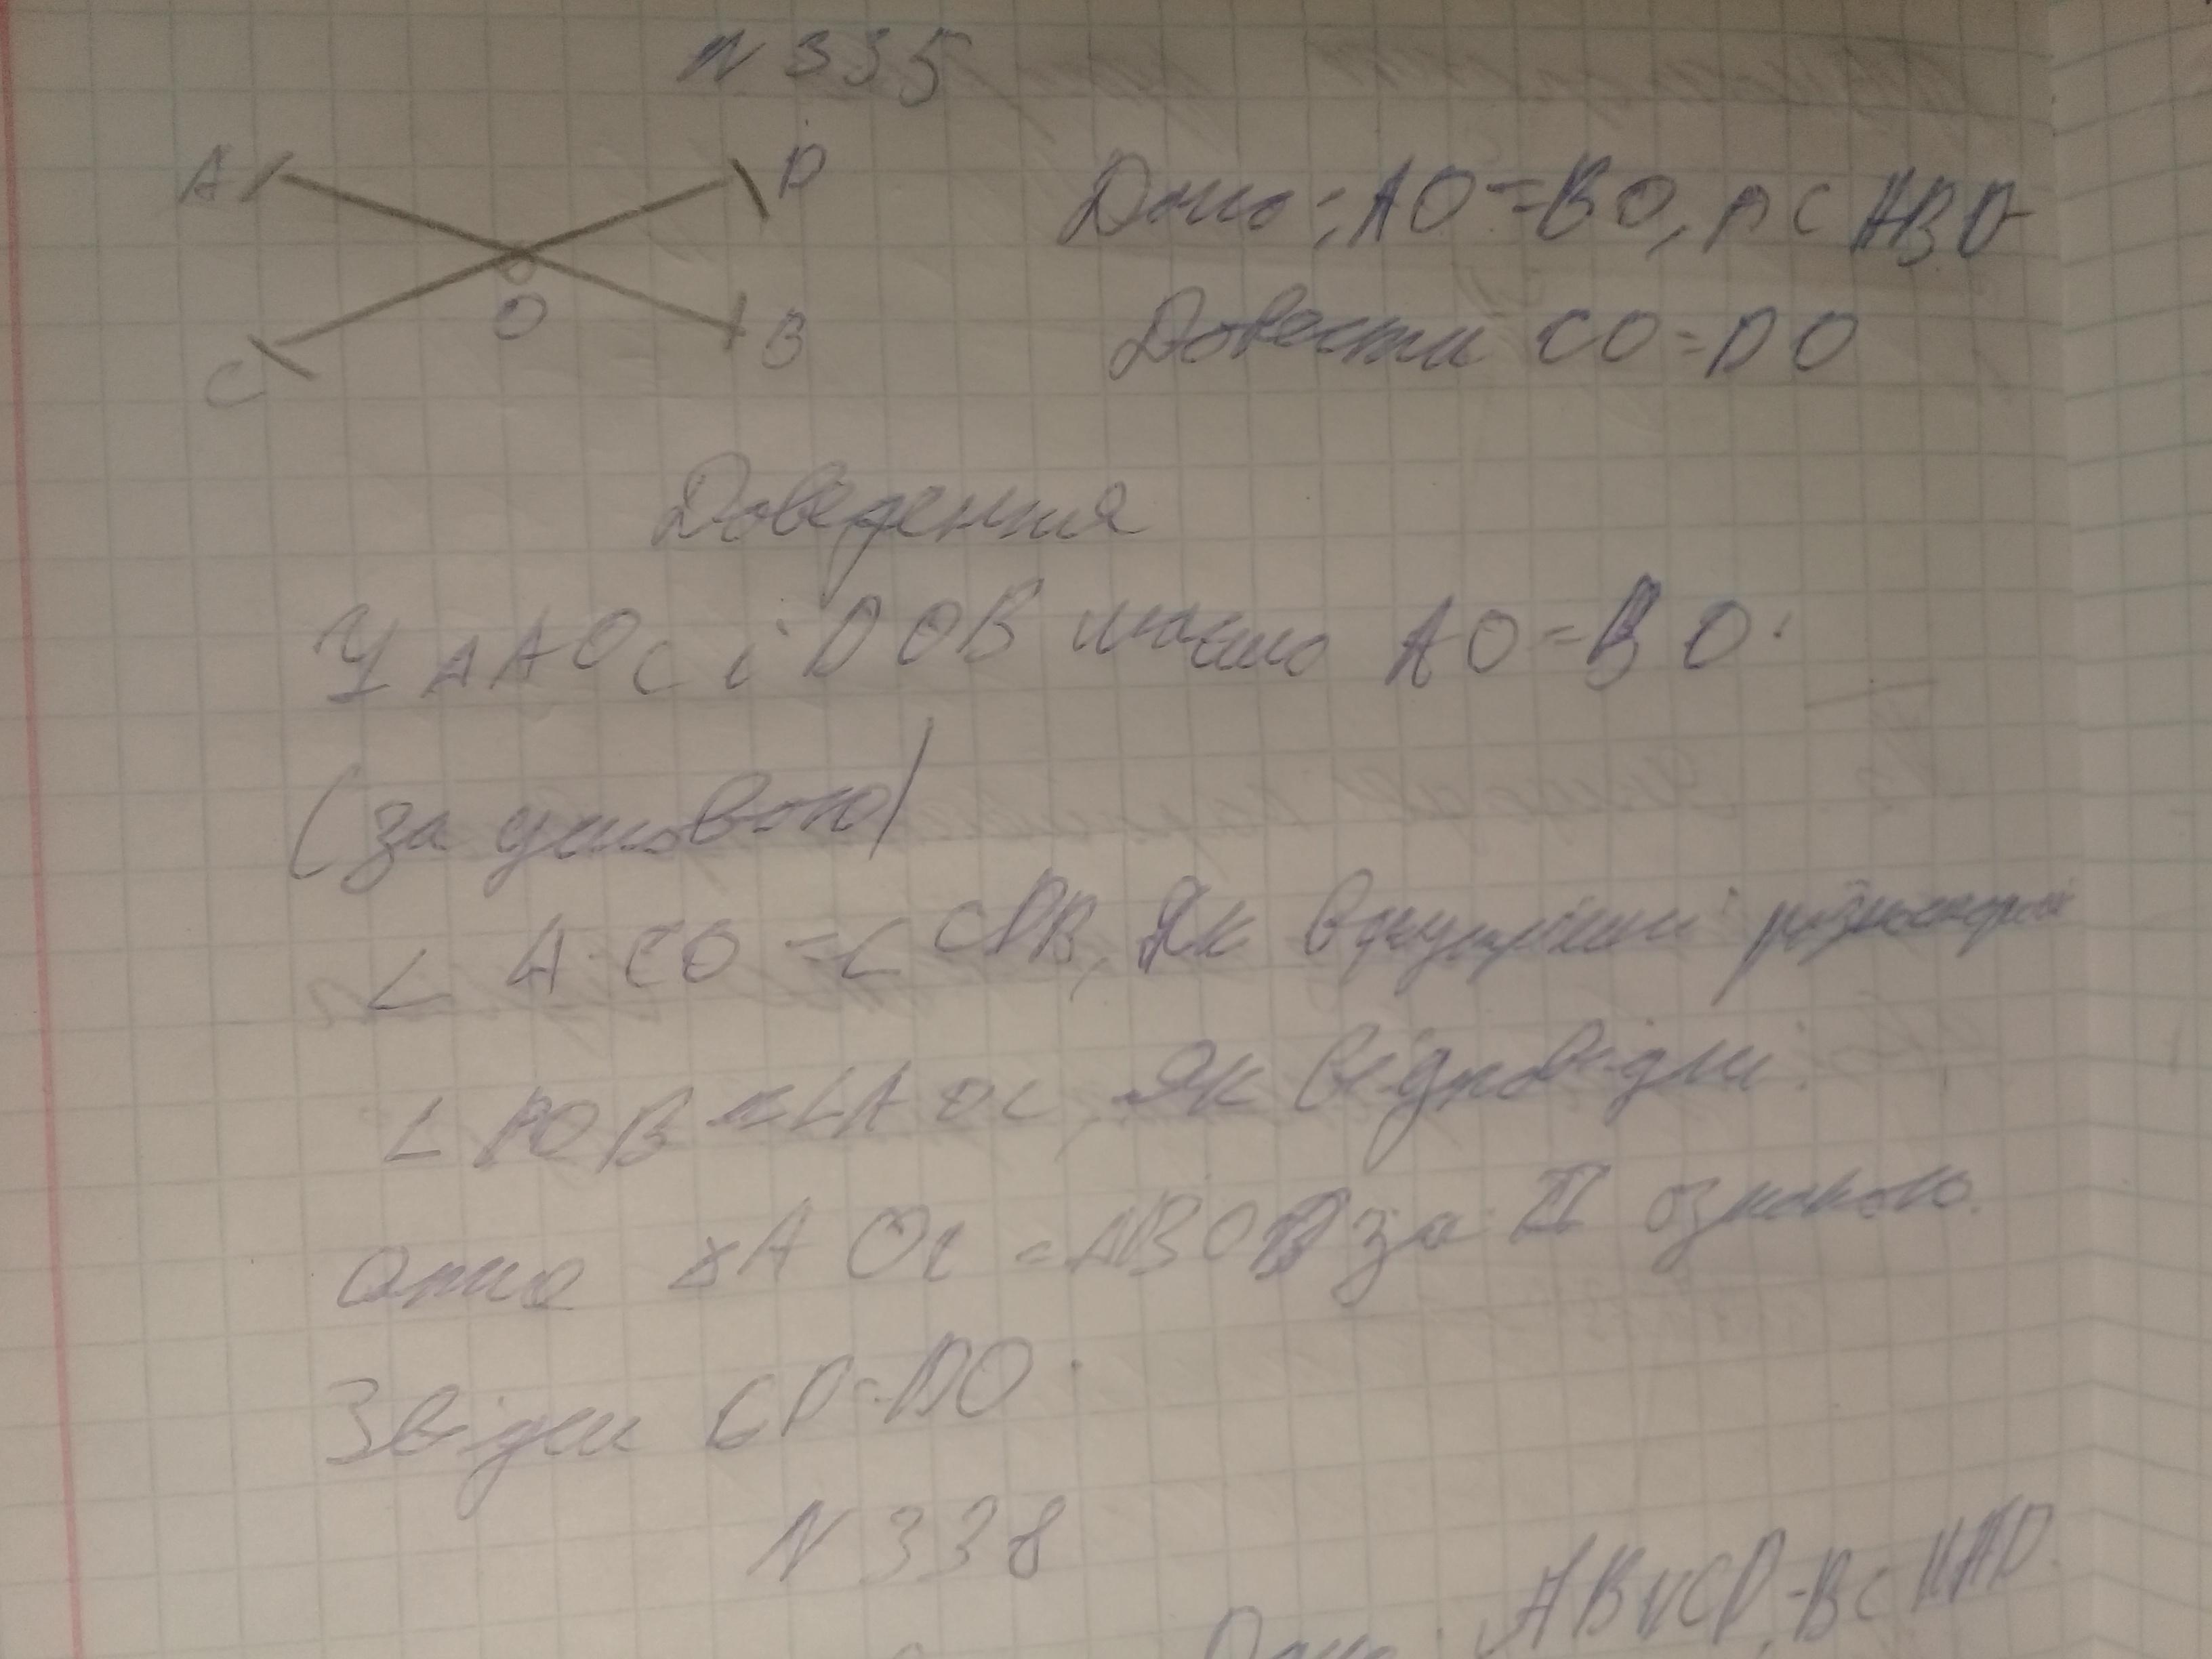 N 335
A D
Дано: AO=BO, AC ∥ BD
O
C B
Довести CO=DO
Доведення
У △AOC і DOB маємо AO=BO.
(за умовою)
∠ ACO =∠ CDB, Як внутрішні різносторонні
∠ DOB =∠AOC, як відповідні.
Отже △AOC =△BOD за II ознакою.
Звідси CD=DO.
N 338
Дано: AB∥CD, BC∥AD